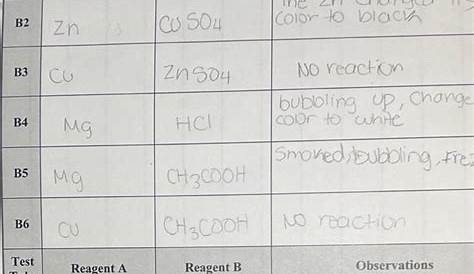 The Zn changed
B2 Zn CuSO4 color to black
B3 Cu ZnSO4 No reaction
bubbling up, Change
B4 Mg HCl color to white
B5 Mg CH3COOH Smoked, bubbling,
B6 Cu CH3COOH No reaction
Test Reagent A Reagent B Observations